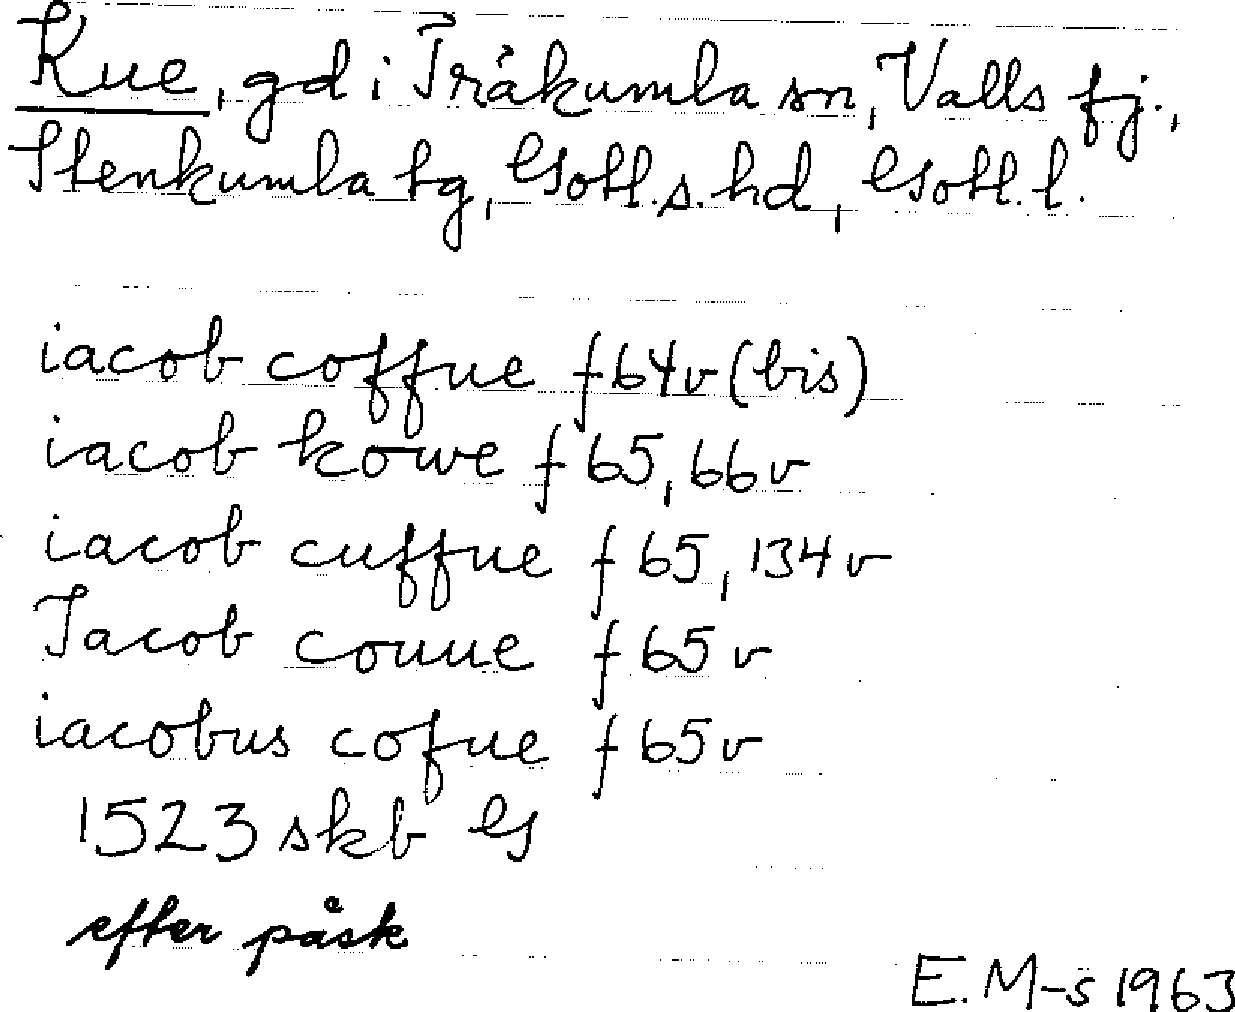 Kue, gd i Träkumla sn, Valls fj.,
Stenkumla tg, Gotl. s. hd, Gotl. l.
iacob coffue f 64v (bis)
iacob kowe f 65, 66v
iacob cuffue f 65, 134v
Jacob couue f 65v
iacobus cofue f 65v
1523 skb G
efter påsk
E. M-s 1963